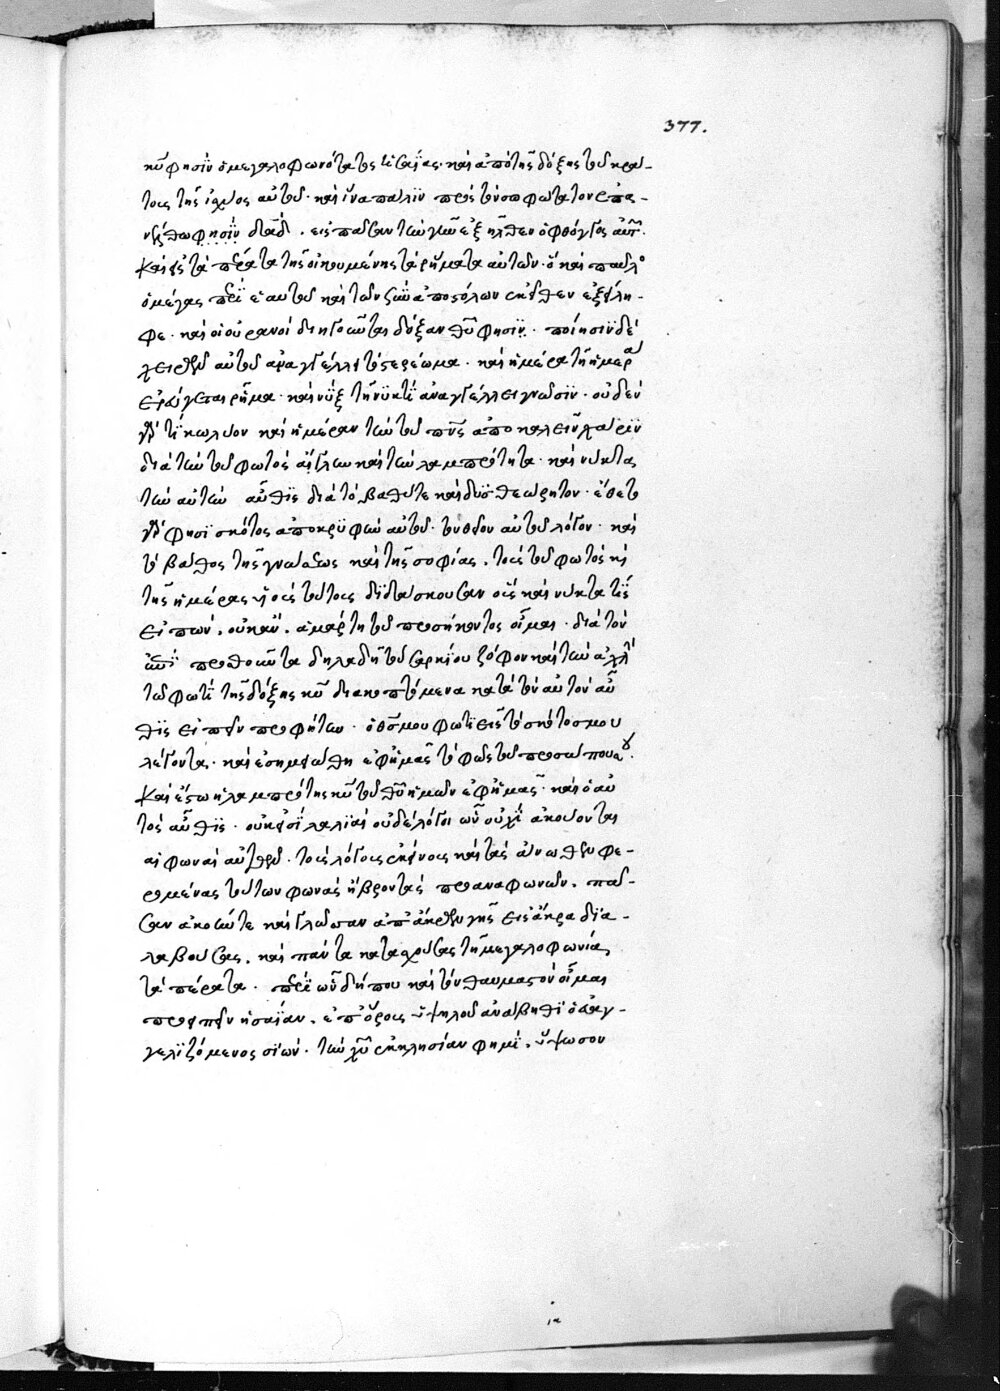 377.
κυ φησὶν ὁ μεγαλοφωνότατος ἠσαΐας· καὶ ἀπὸ τῆς δόξης τοῦ κρά-
τους τῆς ἰσχύος αὐτοῦ· καὶ ἵνα πάλιν πρὸς τὸν
φησὶν δαδ. εἰς πᾶσαν τὴν γῆν ἐξῆλθεν ὁ φθόγγος αὐτ.
καὶ εἰς τὰ πέρατα τῆς οἰκουμένης τὰ ῥήματα αὐτῶν· ὃ καὶ παῦλο
ὁ μέγας περὶ ἑαυτοῦ καὶ τῶν ἀποστόλων ἐκεῖθεν ἐξείλη-
φε· καὶ οἱ οὐρανοὶ διηγοῦνται δόξαν θυ φησὶν· ποίησιν δὲ
χειρῶν αὐτοῦ ἀναγγέλλει τὸ στερέωμα· καὶ ἡμέρα τῇ ἡμέρα
ἐρεύγεται ῥῆμα· καὶ νὺξ τῇ νυκτὶ ἀναγγέλλει γνῶσιν· οὐδὲν
γὰρ τὶ κωλύον καὶ ἡμέραν τὴν τοῦ πνς ἀποκαλεῖν
διὰ τὴν τοῦ φωτὸς αἴγλην καὶ τὴν λαμπρότητα· καὶ νύκτα
τὴν αὐτὴν αὖθις διὰ τὸ βαθύ τε καὶ δυσθεώρητον· ἔθετο
γὰρ φησὶ σκότος ἀποκρυφὴν αὐτοῦ· τὸν θεῖον αὐτοῦ λόγον· καὶ
τὸ βάθος τῆς γνώσεως καὶ τῆς σοφίας. τοὺς τοῦ φωτὸς κὴ
τῆς ἡμέρας υἱοὺς τούτοις διδάσκουσαν οὓς καὶ νύκτα τὶς
εἰπὼν. οὐκ ἂν. ἁμάρτη τοῦ προσήκοντος οἶμαι· διὰ τὸν
προθοῦντα δηλαδὴ τοῦ σαρκίου ζόφον καὶ τὴν
τῷ φωτὶ τῆς δόξης κυ διακοπτόμενα κατὰ τὸν αὐτὸν αὖ
θις εἰπεῖν προφήτην· ὁ θς μου φωτιεῖς τὸ σκότος μου
λέγοντα· καὶ ἐσημειώθη ἐφ ἡμᾶς τὸ φῶς τοῦ προσώπου σου.
καὶ ἔστω ἡ λαμπρότης κυ τοῦ θυ ἡμῶν ἐφ ἡμᾶς· καὶ ὁ αὐ
τὸς αὖθις· οὐκ εἰσὶ λαλιαὶ οὐδὲ λόγοι ὧν οὐχὶ ἀκούονται
αἱ φωναὶ αὐτῶν· τοὺς λόγους ἐκείνους καὶ τὰς ἄνωθεν φε-
ρομένας τούτων φωνὰς ἢ βροντὰς προαναφωνῶν. πᾶ-
σαν ἀκοήν τε καὶ γλῶτταν ἀπ ἄκρων γῆς εἰς ἄκρα δια-
λαβούσας. καὶ πάντα κατὰ τῇ μεγαλοφωνίᾳ
τὰ πέρατα· περὶ ὧν δήπου καὶ τὸν θαυμαστὸν οἶμαι
προειπεῖν ἠσαΐαν. ἐπ ὄρους ὑψηλοῦ ἀνάβηθι ὁ εὐαγ-
γελιζόμενος σιών. τὴν χυ ἐκκλησίαν φημὶ. ὕψωσον